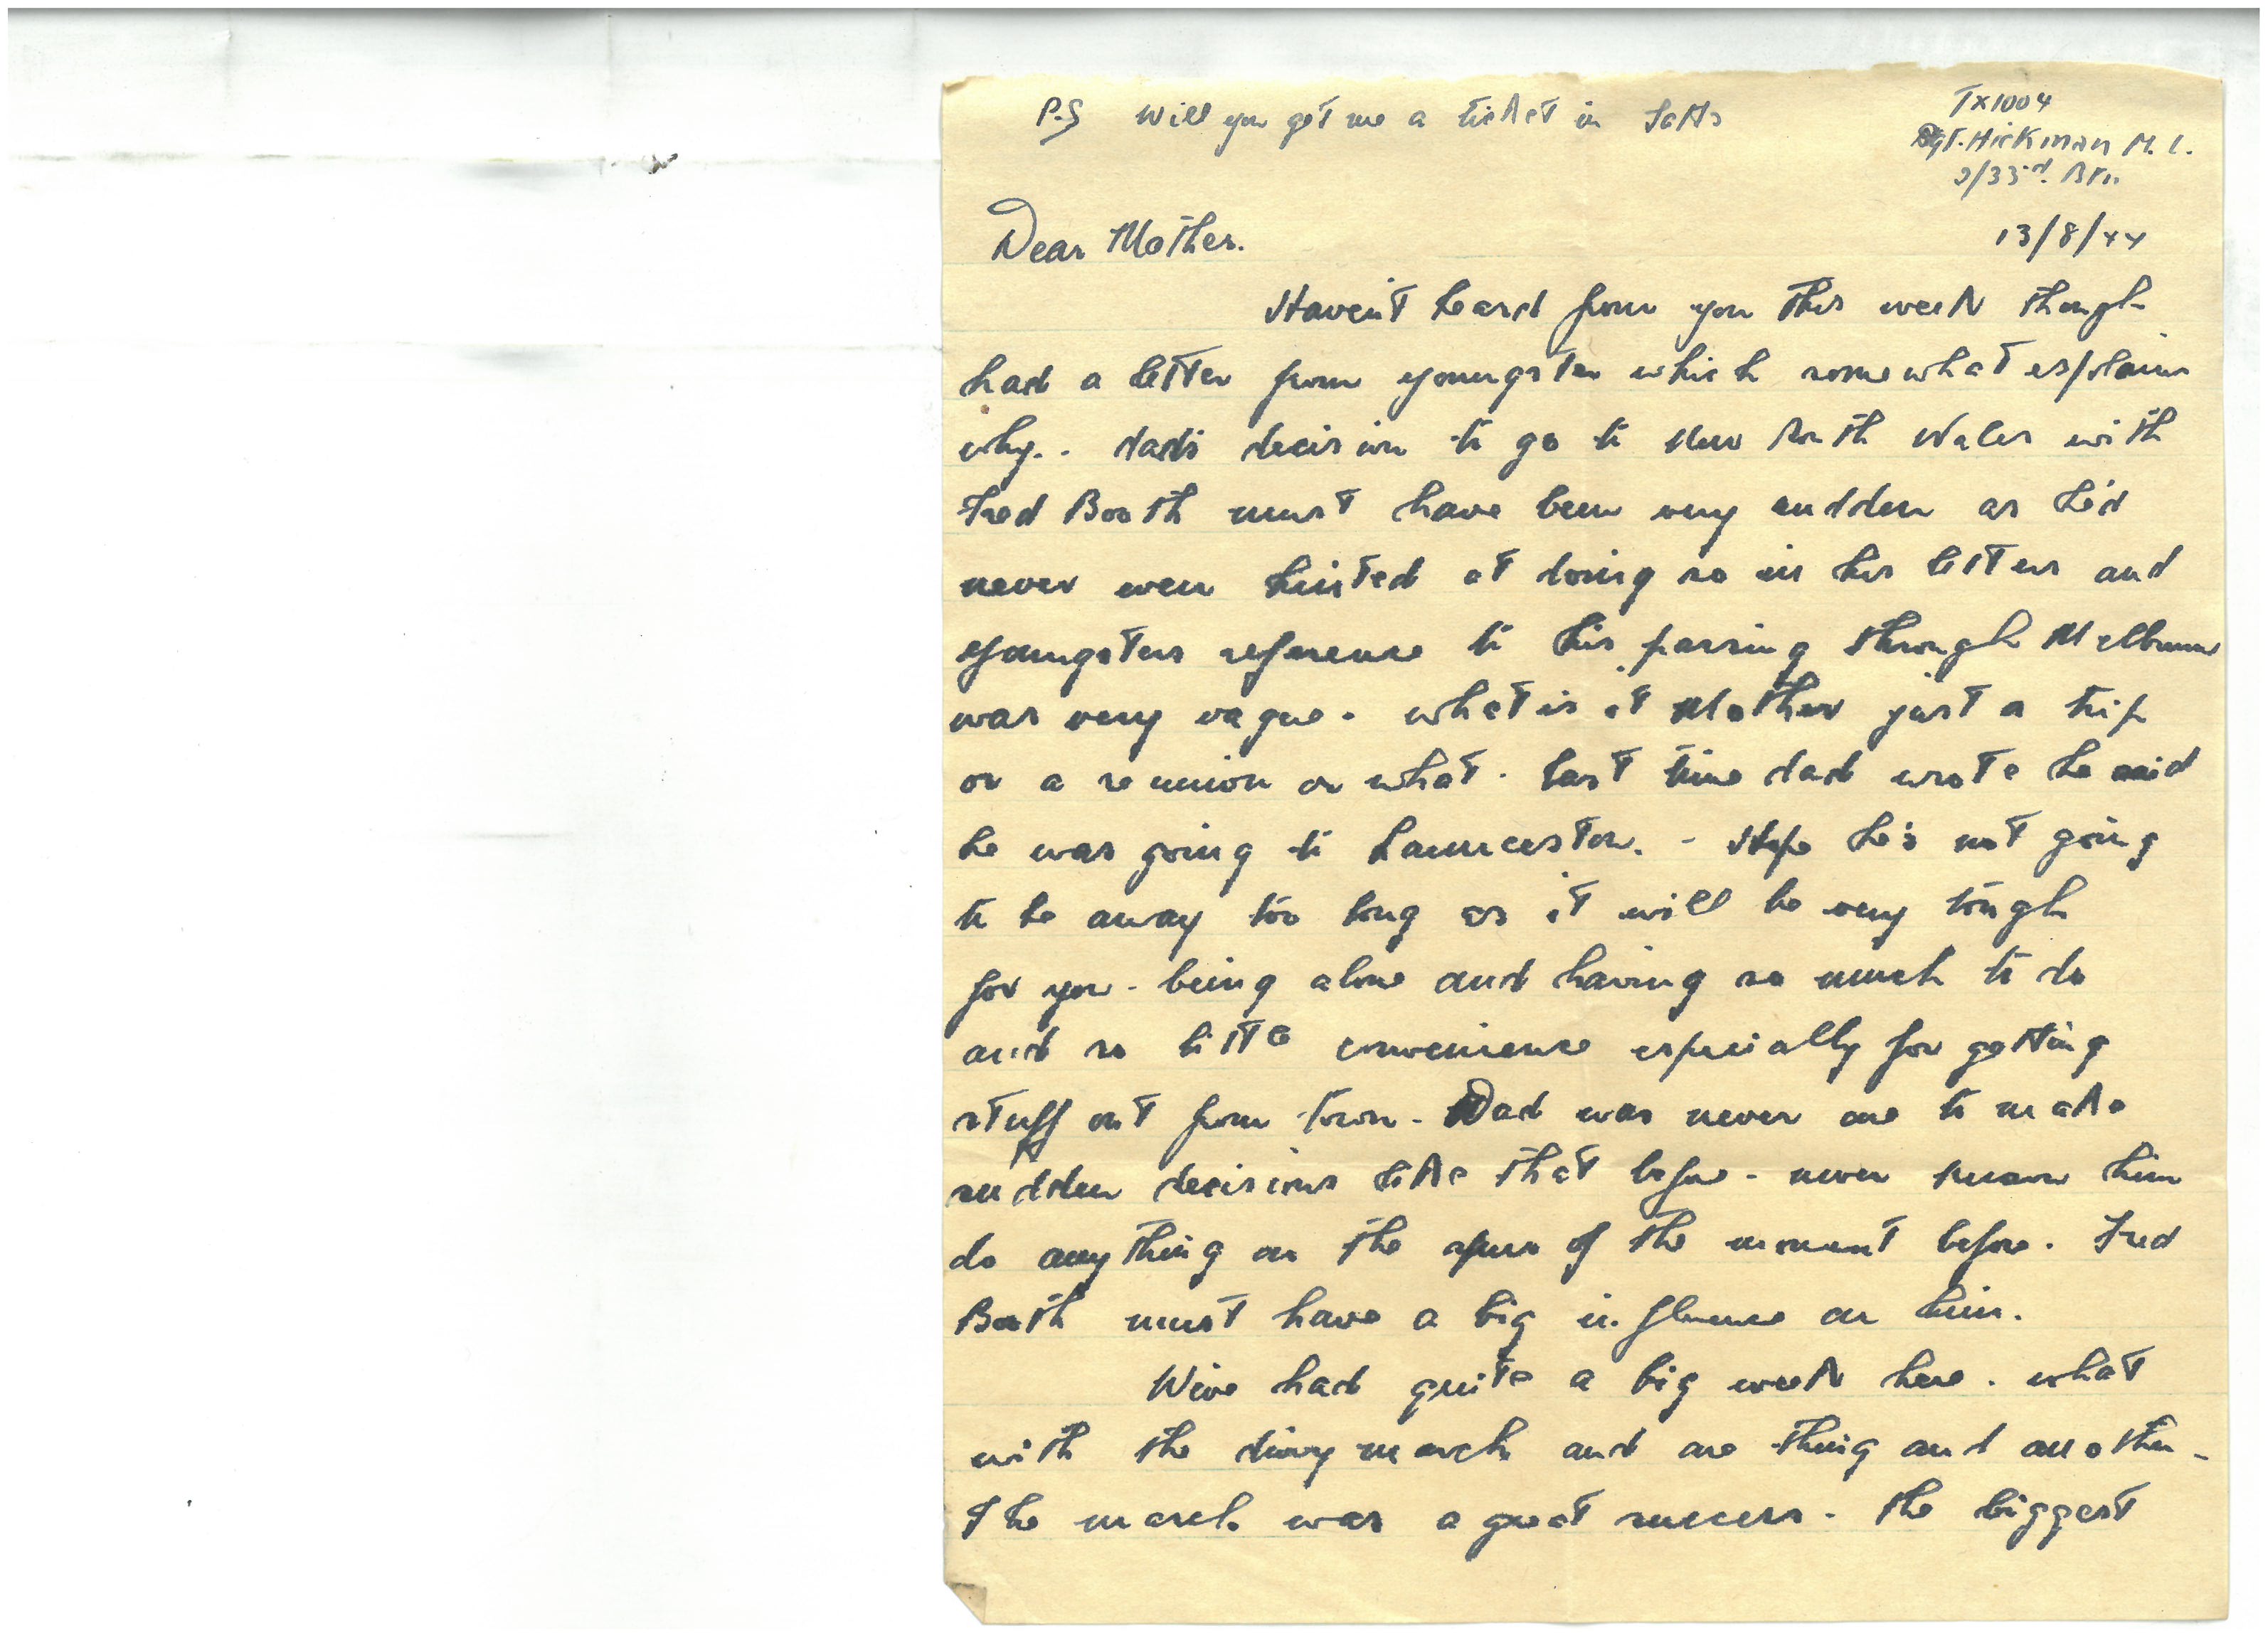 P.S Will you get me a ticket in Tatts
TX1004
Sgt. Hickman M. L.
2/33rd. Btn.
13/8/44
Dear Mother.
Haven't heard from you this week though
had a letter from youngster which somewhat explains
why. . dad's decision to go to New South Wales with
Fred Booth must have been very sudden as he'd
never even hinted at doing so in his letters and
youngsters reference to his passing through Melbourne
was very vague - what is it Mother just a trip
or a reunion or what. last time dad wrote he said
he was going to Launceston. - Hope he's not going
to be away too long as it will be very tough
for you - being alone and having so much to do
and so little convenience especially for getting
stuff out from town - Dad was never one to make
sudden decisions like that before - never known him
do anything on the spur of the moment before. Fred
Booth must have a big influence on him.
We've had quite a big week here . what
with the divvy march and one thing and another -
The march was a great success - the biggest